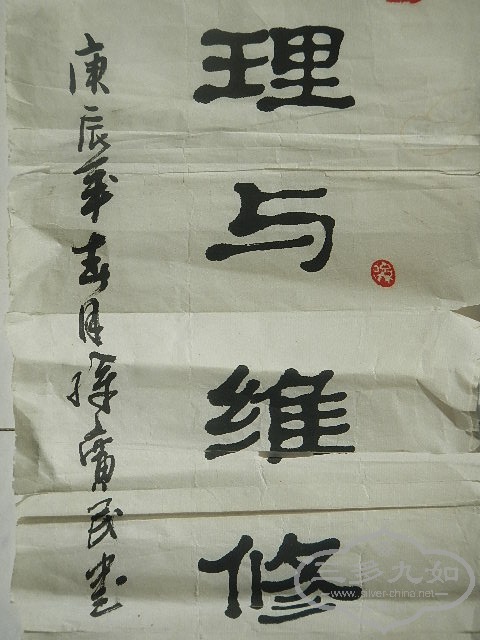 理与维修
庚辰年春月孫廣民書
三多九如
www.silver-china.net